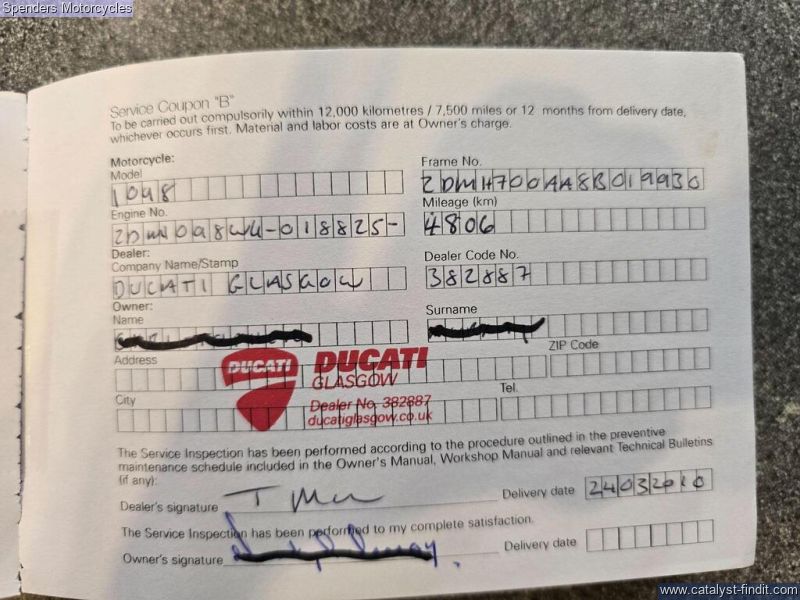 Spenders Motorcycles
Service Coupon "B"
To be carried out compulsorily within 12,000 kilometres / 7,500 miles or 12 months from delivery date,
whichever occurs first. Material and labor costs are at Owner's charge.
Motorcycle:
Model
1098
Frame No.
ZDMH700AA8B019930
Engine No.
Mileage (km)
4806
Dealer:
Company Name/Stamp
DUCATI GLASGOW
Dealer Code No.
382887
Owner:
Name
Surname
Address
ZIP Code
DUCATI
DUCATI
GLASGOW
City
Tel.
Dealer No. 382887
ducatiglasgow.co.uk
The Service Inspection has been performed according to the procedure outlined in the preventive
maintenance schedule included in the Owner's Manual, Workshop Manual and relevant Technical Bulletins
(if any):
Dealer's signature
Delivery date 24032010
The Service Inspection has been performed to my complete satisfaction.
Owner's signature
Delivery date
www.catalyst-findit.com